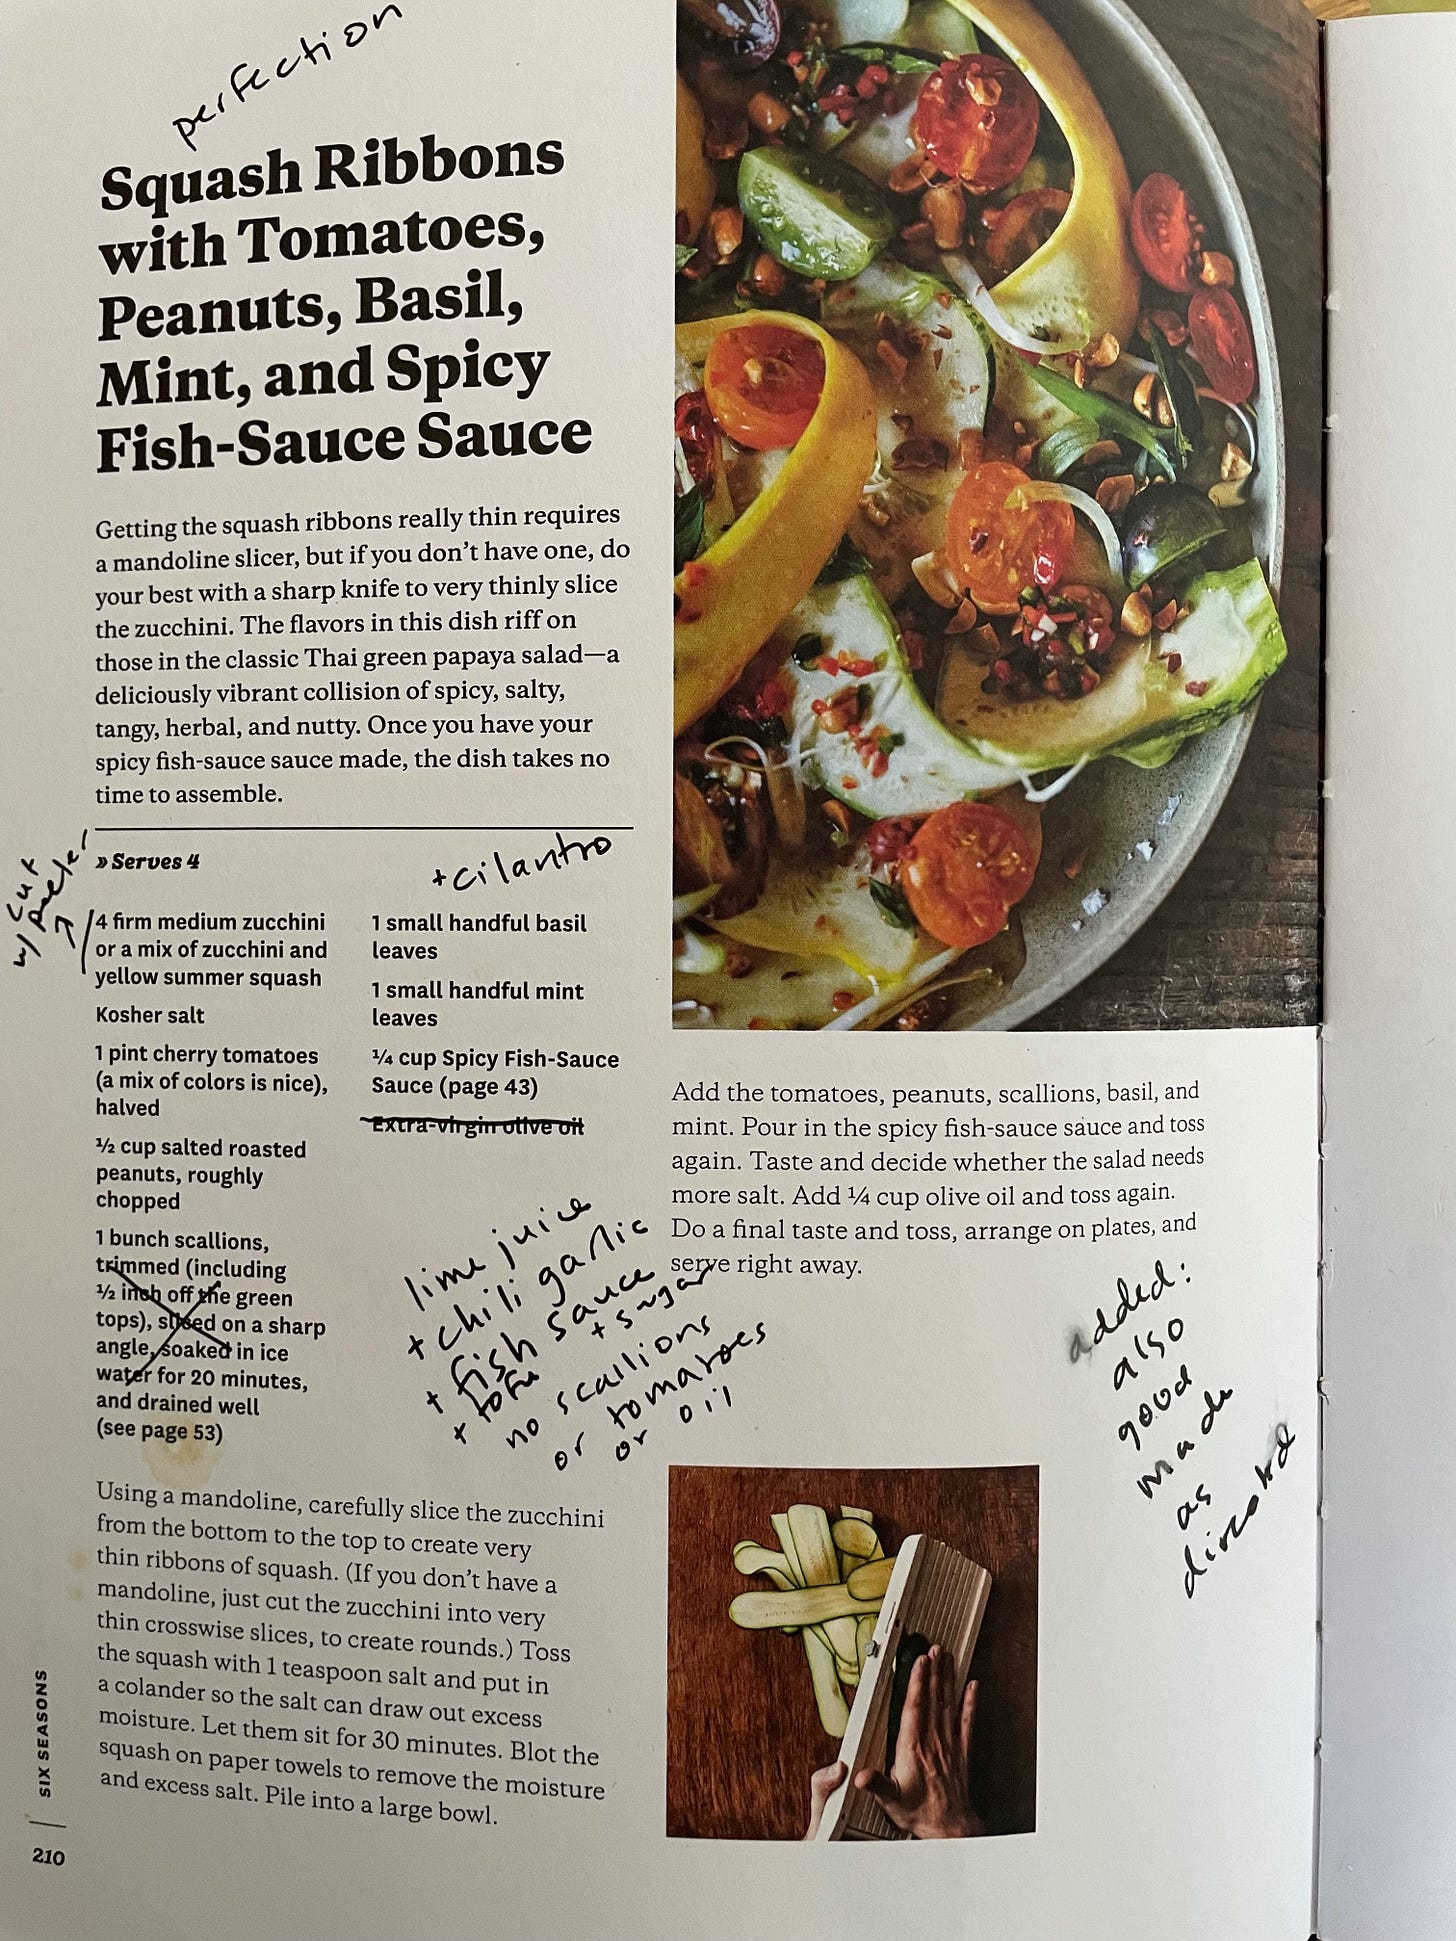 perfection
Squash Ribbons
with Tomatoes,
Peanuts, Basil,
Mint, and Spicy
Fish-Sauce Sauce
Getting the squash ribbons really thin requires
a mandoline slicer, but if you don't have one, do
your best with a sharp knife to very thinly slice
the zucchini. The flavors in this dish riff on
those in the classic Thai green papaya salad—a
deliciously vibrant collision of spicy, salty,
tangy, herbal, and nutty. Once you have your
spicy fish-sauce sauce made, the dish takes no
time to assemble.
» Serves 4
cut
w/ peeler
4 firm medium zucchini
or a mix of zucchini and
yellow summer squash
Kosher salt
1 pint cherry tomatoes
(a mix of colors is nice),
halved
½ cup salted roasted
peanuts, roughly
chopped
1 bunch scallions,
trimmed (including
½ inch off the green
tops), sliced on a sharp
angle, soaked in ice
water for 20 minutes,
and drained well
(see page 53)
+ cilantro
1 small handful basil
leaves
1 small handful mint
leaves
¼ cup Spicy Fish-Sauce
Sauce (page 43)
Extra-virgin olive oil
lime juice
+ chili garlic
+ fish sauce
+ sugar
+ tofu
no scallions
or tomatoes
or oil
Using a mandoline, carefully slice the zucchini
from the bottom to the top to create very
thin ribbons of squash. (If you don't have a
mandoline, just cut the zucchini into very
thin crosswise slices, to create rounds.) Toss
the squash with 1 teaspoon salt and put in
a colander so the salt can draw out excess
moisture. Let them sit for 30 minutes. Blot the
squash on paper towels to remove the moisture
and excess salt. Pile into a large bowl.
Add the tomatoes, peanuts, scallions, basil, and
mint. Pour in the spicy fish-sauce sauce and toss
again. Taste and decide whether the salad needs
more salt. Add ¼ cup olive oil and toss again.
Do a final taste and toss, arrange on plates, and
serve right away.
added:
also
good
made
as
directed
SIX SEASONS
210